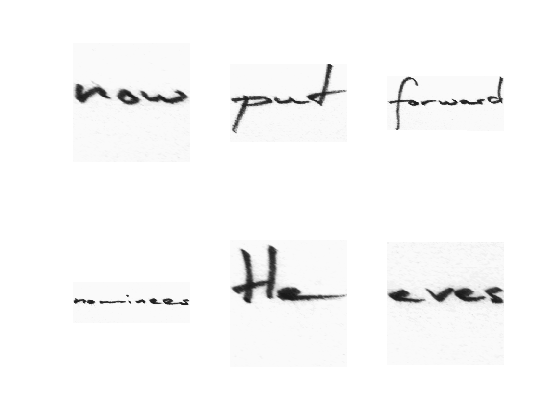 now put forward
nominees He eyes